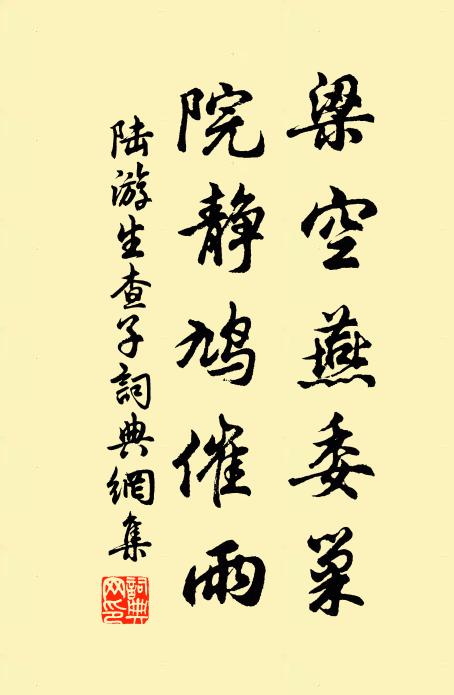 梁空燕委巢
院静鸠催雨
陆游生查子詞典網集
詞典网印